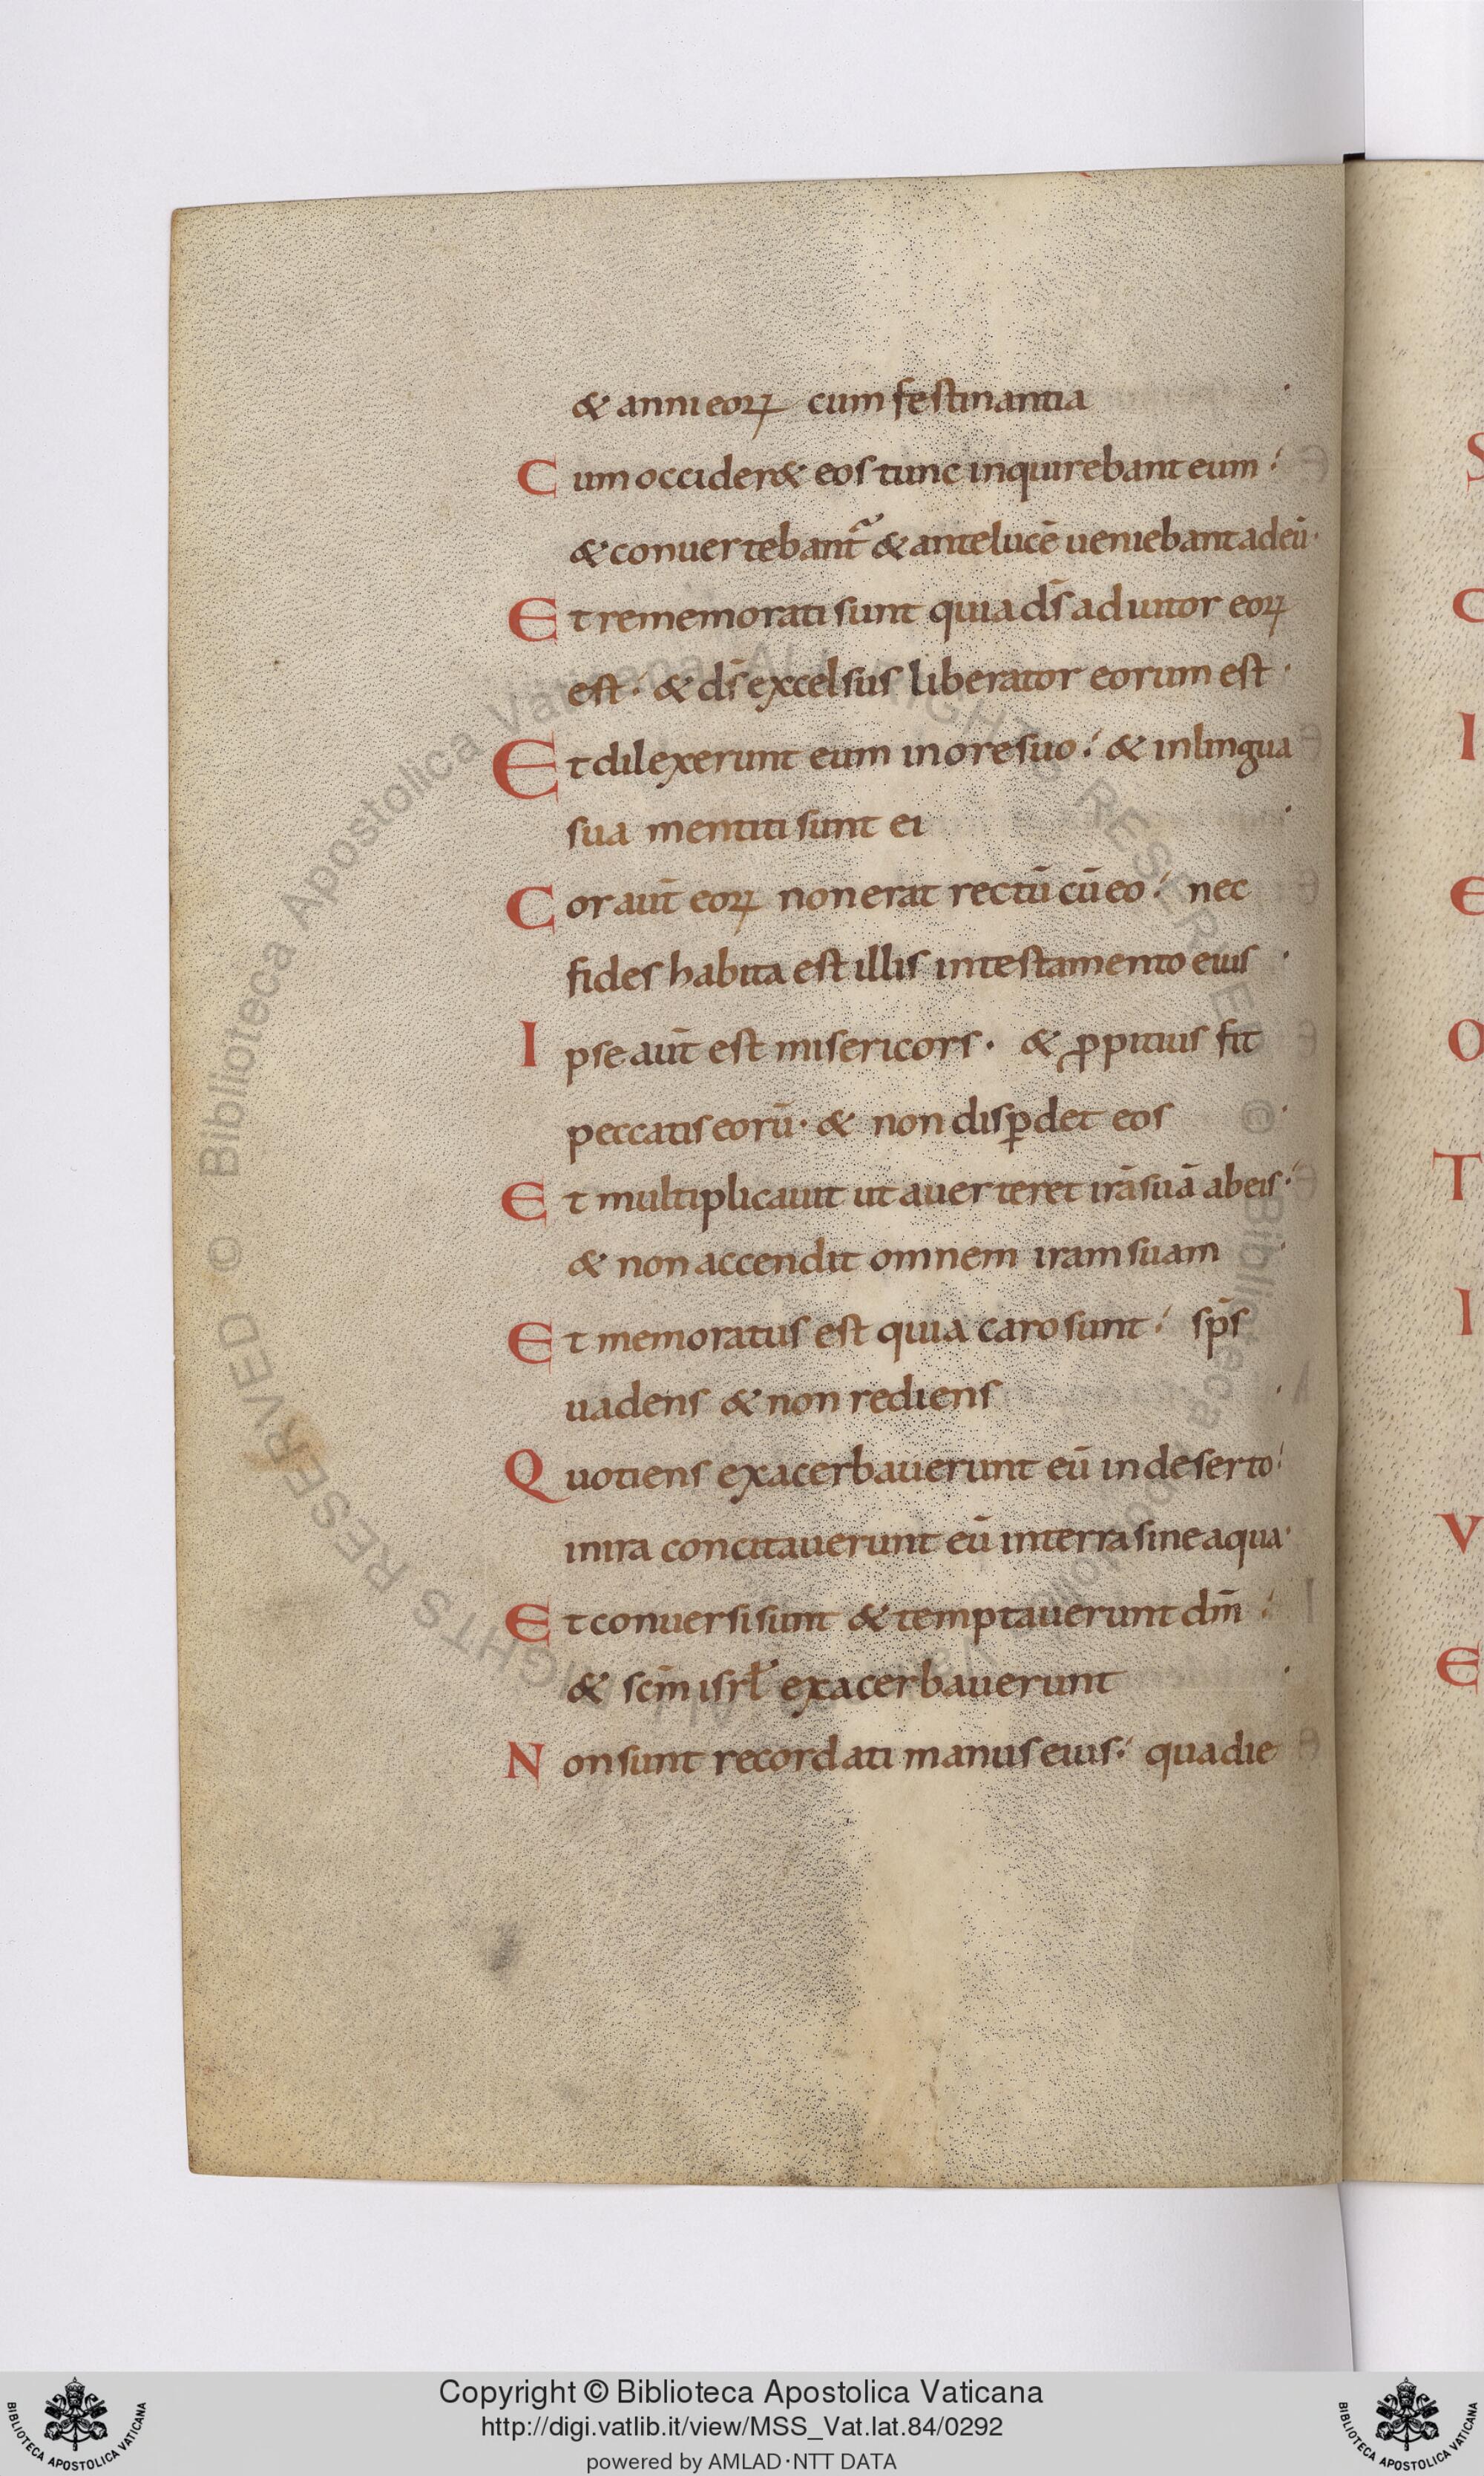 & anni eoꝝ cum festinantia ·
Cum occider& eos tunc inquirebant eum ·
& conuertebant᷑ & ante lucē ueniebant ad eū ·
Et rememorati sunt quia d̄s adiutor eoꝝ
est · & d̄s excelsus liberator eorum est ·
Et dilexerunt eum in ore suo · & in lingua
sua mentiti sunt ei ·
Cor aut̄ eoꝝ non erat rectū cū eo · nec
fides habita est illis in testamento eius ·
Ipse aut̄ est misericors · & ꝓpitius fit
peccatis eorū · & non disꝑdet eos ·
Et multiplicauit ut auerteret irā suā ab eis ·
& non accendit omnem iram suam ·
Et memoratus est quia caro sunt · sp̄s
uadens & non rediens ·
Quotiens exacerbauerunt eū in deserto ·
in ira concitauerunt eū in terra sine aqua ·
Et conuersi sunt & temptauerunt dm̄ ·
& scm̄ isrł exacerbauerunt ·
Non sunt recordati manus eius · qua die
S
C
I
E
O
T
I
V
E
© Biblioteca Apostolica Vaticana ALL RIGHTS RESERVED
Copyright © Biblioteca Apostolica Vaticana
http://digi.vatlib.it/view/MSS_Vat.lat.84/0292
powered by AMLAD·NTT DATA
BIBLIOTECA APOSTOLICA VATICANA
BIBLIOTECA APOSTOLICA VATICANA